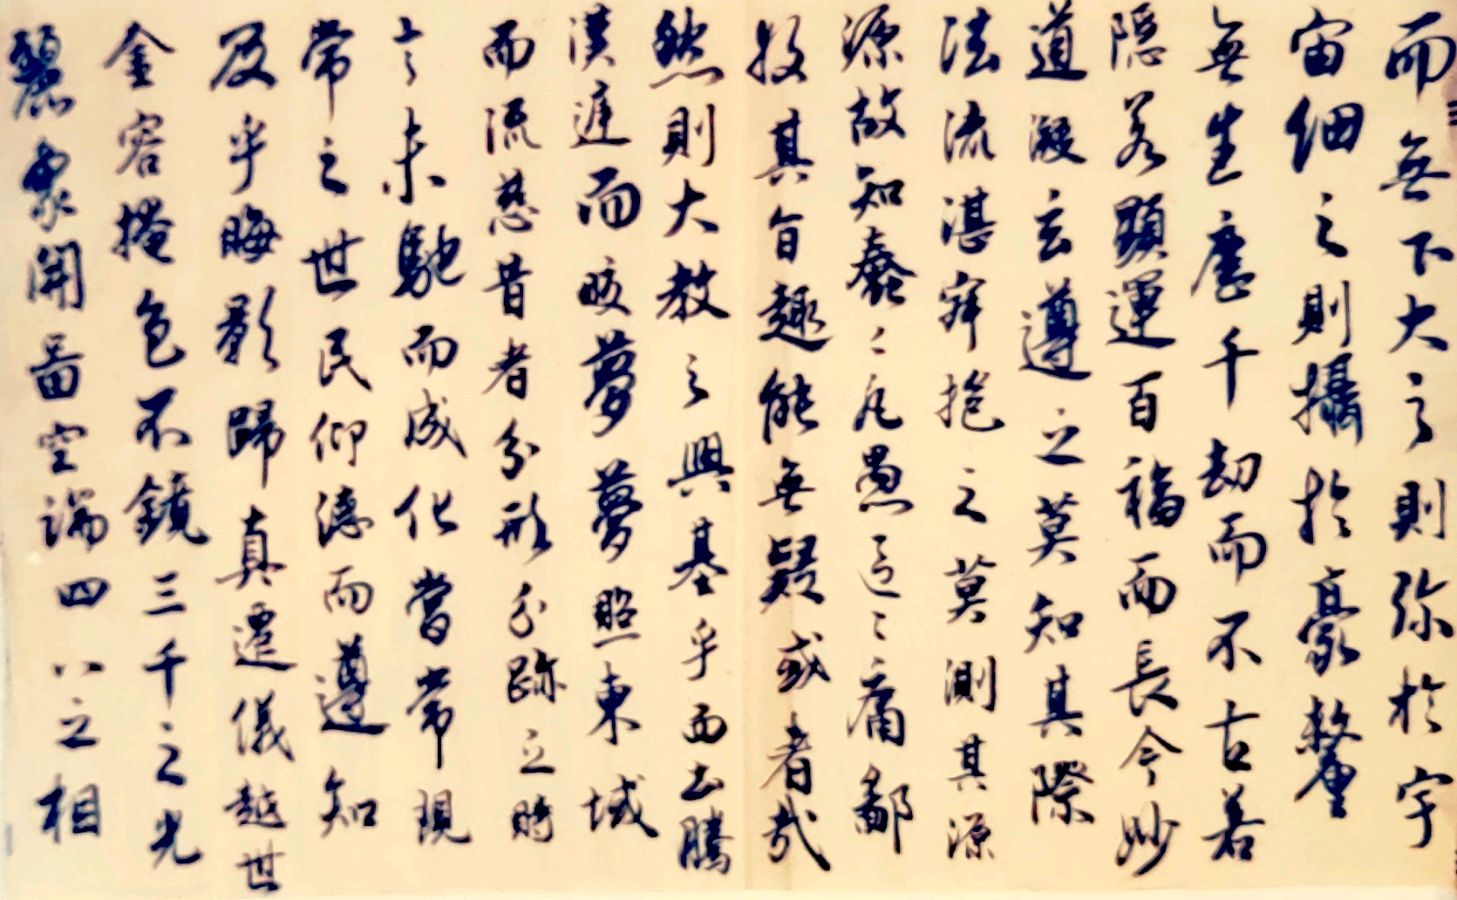 而無下大之則弥於宇
宙細之則攝於豪釐
無生歷千劫而不古若
隱若顯運百福而長今妙
道凝玄遵之莫知其際
法流湛寂挹之莫測其源
源故知蠢〻凡愚區〻庸鄙
投其旨趣能無疑或者哉
然則大教之興基乎西土騰
漢庭而皎夢夢照東域
而流慈昔者分形分跡之時
言未馳而成化當常現
常之世民仰德而遵知
及乎晦影歸真遷儀越世
金容掩色不鏡三千之光
麗象開圖空端四八之相